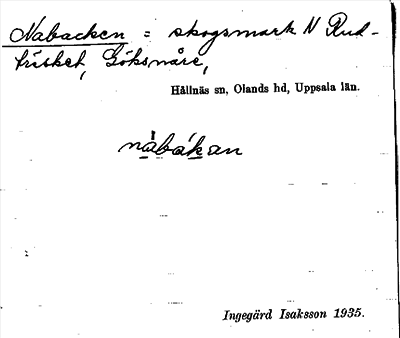 Nabacken = skogsmark N Rud-
trisket, Göksnåre,
Hållnäs sn, Olands hd, Uppsala län.
nàbákan
Ingegärd Isaksson 1935.